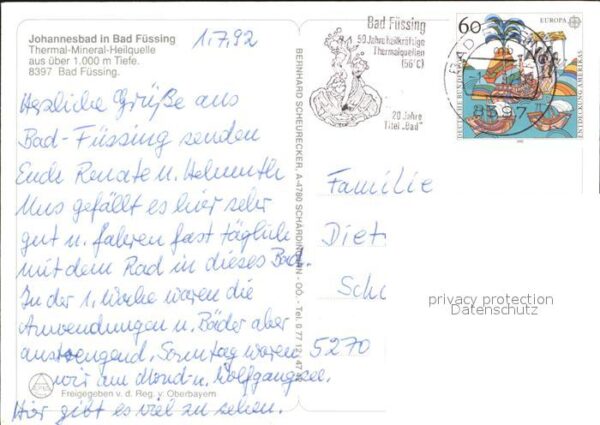 Johannesbad in Bad Füssing
Thermal-Mineral-Heilquelle
aus über 1.000 m Tiefe.
8397 Bad Füssing.
1.7.92
Herzliche Grüße aus
Bad-Füssing senden
Euch Renate u. Helmuth
Uns gefällt es hier sehr
gut u. fahren fast täglich
mit dem Rad in dieses Bad.
In der 1. Woche waren die
Anwendungen u. Bäder aber
anstrengend. Sonntag waren
wir am Mond- u. Wolfgangsee.
Hier gibt es viel zu sehen.
Freigegeben v. d. Reg. v. Oberbayern
BERNHARD SCHEURECKER, A-4780 SCHÄRDING/INN - OÖ. - Tel. 0 77 12 / 47
Bad Füssing
50 Jahre heilkräftige
Thermalquellen
(56°C)
20 Jahre
Titel „Bad"
60
EUROPA
DEUTSCHE BUNDESPOST
ENTDECKUNG AMERIKAS
8397
Familie
Diet
Sch
5270
privacy protection
Datenschutz